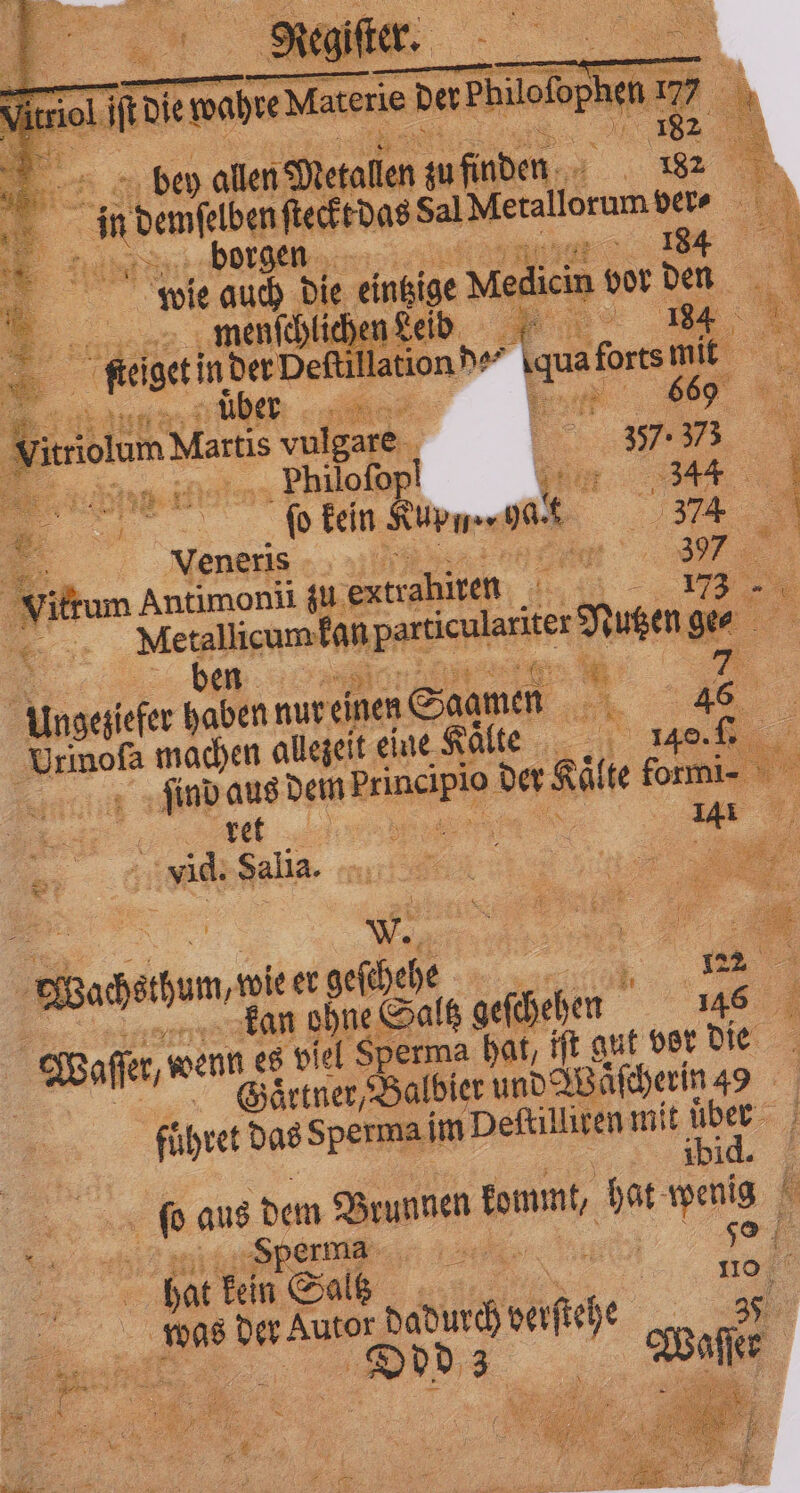 Regiſter.
Vitriol iſt die wahre Materie der Philoſophen 177
182
bey allen Metallen zu finden 182
in demſelben ſteckt das Sal Metallorum ver⸗
borgen 184
wie auch die eintzige Medicin vor den
menſchlichen Leib 184
ſteiget in der Deſtillation forts mit
uͤber 669
Vitriolum Martis vulgare 357. 373
Philoſop 344
ſo kein 374
Veneris 397
Vitrum Antimonii zu extrahiren 173
Metallicum kan particulariter Nutzen ge⸗
ben 7
Ungeziefer haben nur einen Saamen 46
Urinoſa machen allezeit eine Kaͤlte 140. ſ.
ſind aus dem Principio der Kaͤlte formi-
ret 141
vid. Salia.
W.
Wachsthum, wie er geſchehe 122
kan ohne Saltz geſchehen 146
Waſſer, wenn es viel Sperma hat, iſt gut vor die
Gaͤrtner, Balbier und Waͤſcherin 49
fuͤhret das Sperma im Deſtilliren mit uͤber
ibid.
ſo aus dem Brunnen kommt, hat wenig
Sperma 50
hat kein Saltz 110
was der Autor dadurch verſtehe 35
Ddd 3 Waſſer